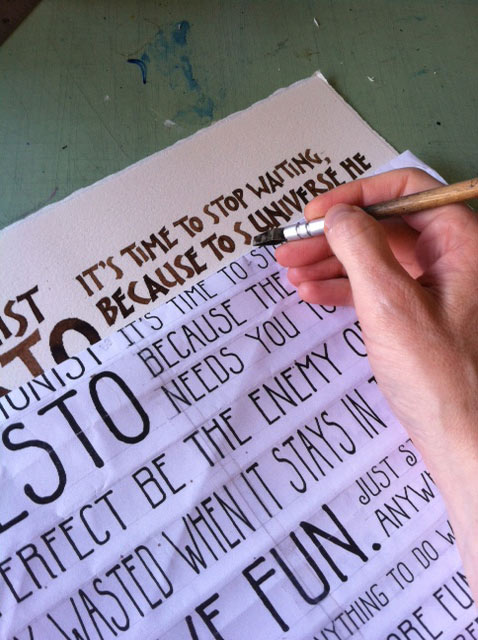 IT'S TIME TO STOP WAITING,
BECAUSE TO S UNIVERSE HE
NIST
STO
IONIST
ESTO
IT'S TIME TO ST
BECAUSE THE
NEEDS YOU TO
ERFECT BE THE ENEMY OF
WASTED WHEN IT STAYS IN T
VE FUN.
JUST ST
ANYW
YTHING TO DO W
ORE FUN